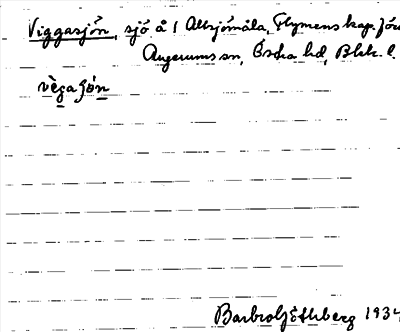 Viggasjön, sjö å 1 Allsjömåla, Flymens kap. förs.
Augerums sn, Östra hd, Blek. l.
vègasjön
Barbro Göthberg 1934